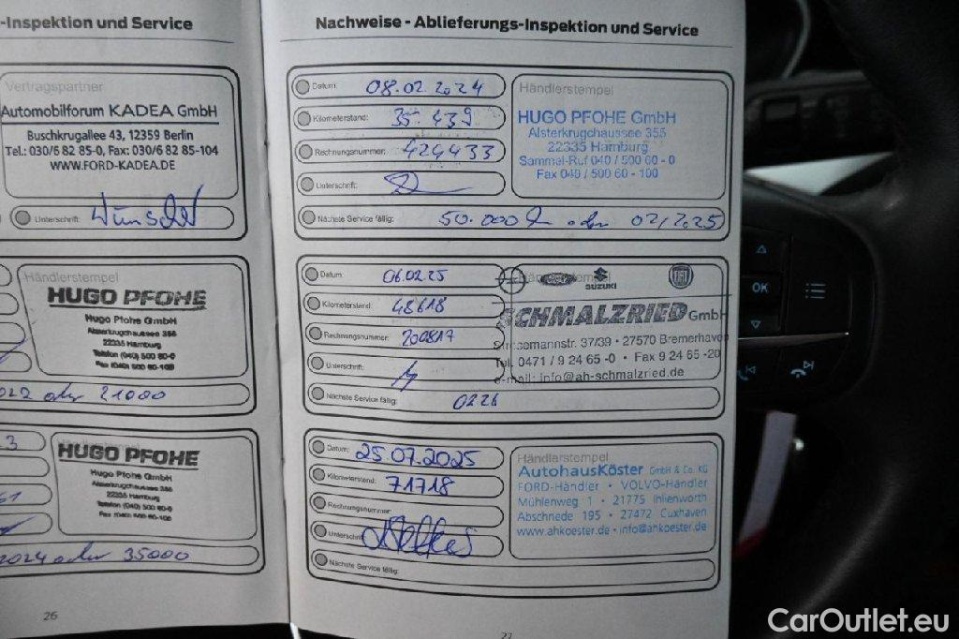 -Inspektion und Service
Vertragspartner
Automobilforum KADEA GmbH
Buschkrugallee 43, 12359 Berlin
Tel.: 030/6 82 85-0, Fax: 030/6 82 85-104
WWW.FORD-KADEA.DE
Unterschrift:
Händlerstempel
HUGO PFOHE
Hugo Pfohe GmbH
Alsterkrugchaussee 355
22335 Hamburg
Telefon (040) 500 60-0
Fax (040) 500 60-100
oder 21000
Händlerstempel
HUGO PFOHE
Hugo Pfohe GmbH
Alsterkrugchaussee 355
22335 Hamburg
Telefon (040) 500 60-0
Fax (040) 500 60-100
2024 oder 35000
26
Nachweise - Ablieferungs-Inspektion und Service
Datum: 08.02.2024
Kilometerstand: 35.439
Rechnungsnummer: 424433
Unterschrift:
Nächste Service fällig: 50.000 oder 02/2025
Händlerstempel
HUGO PFOHE GmbH
Alsterkrugchaussee 355
22335 Hamburg
Sammel-Ruf 040 / 500 60 - 0
Fax 040 / 500 60 - 100
Datum: 06.02.25
Kilometerstand: 48618
Rechnungsnummer: 200817
Unterschrift:
Nächste Service fällig: 0226
Händlerstempel
SUZUKI
SCHMALZRIED GmbH
37/39 • 27570 Bremerhaven
Tel. 0471 / 9 24 65 -0 • Fax 9 24 65 -20
e-mail: info@ah-schmalzried.de
Datum: 25.07.2025
Kilometerstand: 71718
Rechnungsnummer:
Unterschrift:
Nächste Service fällig:
Händlerstempel
AutohausKöster GmbH & Co. KG
FORD-Händler • VOLVO-Händler
Mühlenweg 1 • 21775 Ihlienworth
Abschnede 195 • 27472 Cuxhaven
www.ahkoester.de • info@ahkoester.de
27
OK
CarOutlet.eu